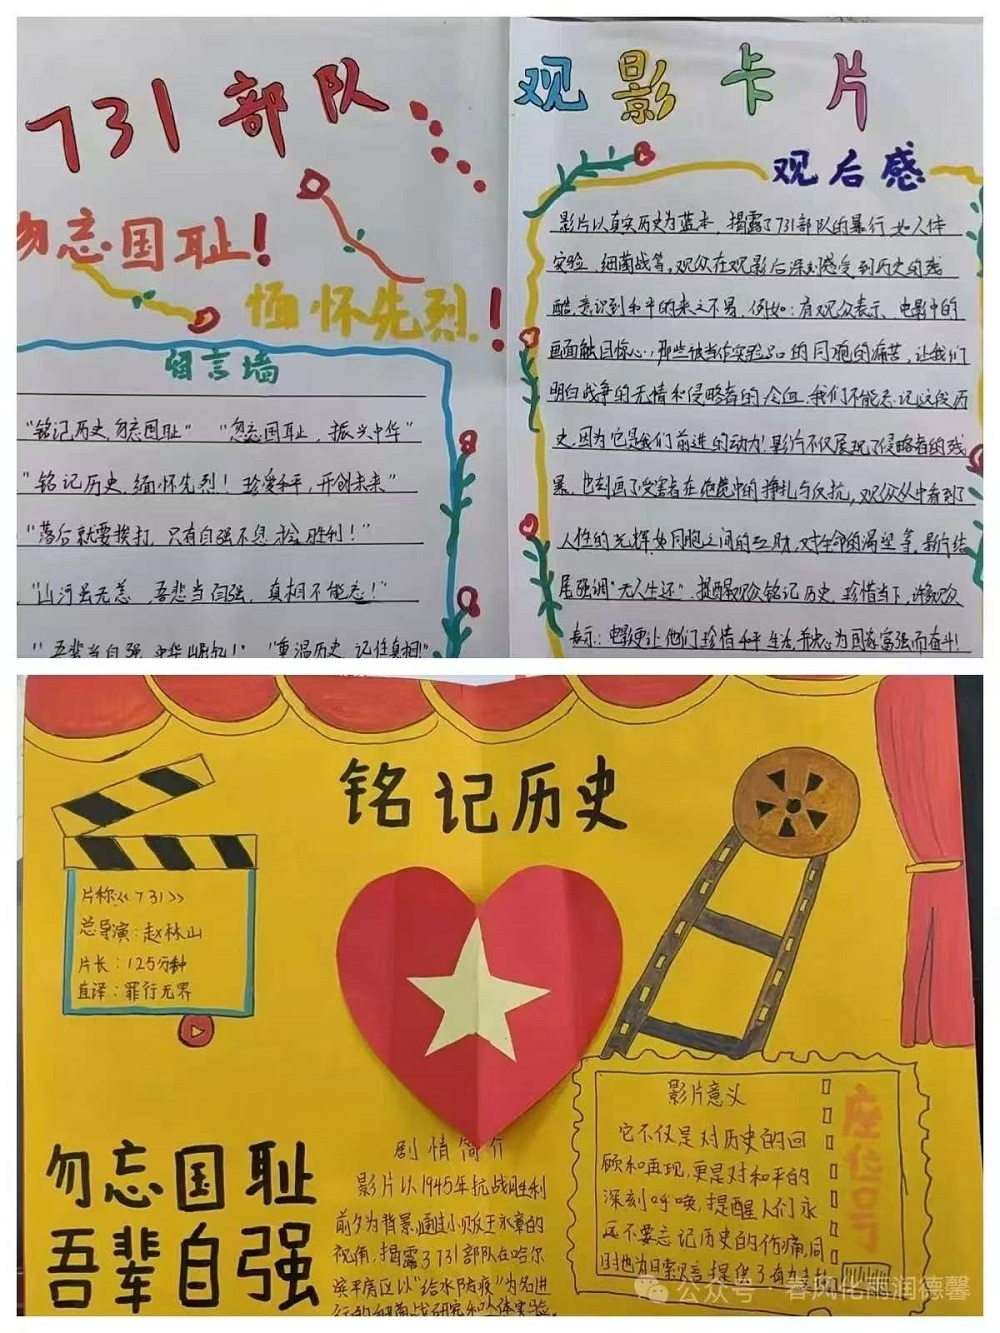 731部队
勿忘国耻!
缅怀先烈!
留言墙
"铭记历史,勿忘国耻" "勿忘国耻,振兴中华"
"铭记历史,缅怀先烈!珍爱和平,开创未来"
"落后就要挨打,只有自强不息,才会胜利!"
"山河虽无恙 吾辈当自强,真相不能忘!"
"吾辈当自强,中华崛起!" "重温历史,记住真相!"
观影卡片
观后感
影片以真实历史为蓝本,揭露了731部队的暴行,如人体
实验、细菌战等。观众在观影后深刻感受到历史的残
酷,意识到和平的来之不易。例如:有观众表示、电影中的
画面触目惊心,那些被当作实验品的同胞的痛苦,让我们
明白战争的无情和侵略者的冷血。我们不能忘记这段历
史,因为它是我们前进的动力!影片不仅展现了侵略者的残
暴,也刻画了受害者在绝境中的挣扎与反抗,观众从中看到了
人性的光辉,如同胞之间的互助,对生命的渴望等。影片结
尾强调"无人生还",提醒观众铭记历史,珍惜当下,许多观众
表示:电影更让他们珍惜和平生活,并决心为国家富强而奋斗!
铭记历史
片称《731》
总导演:赵林山
片长:125分钟
直译:罪行无界
勿忘国耻
吾辈自强
剧情简介
影片以1945年抗战胜利
前夕为背景,通过小贩王永章的
视角,揭露了731部队在哈尔
滨平房区以"给水防疫"为名进
行的细菌战研究和人体实验。
影片意义
它不仅是对历史的回
顾和再现,更是对和平的
深刻呼唤,提醒人们永
远不要忘记历史的伤痛,同
时也为日索赔提供了有力
座位号
公众号·春风化雨润德馨